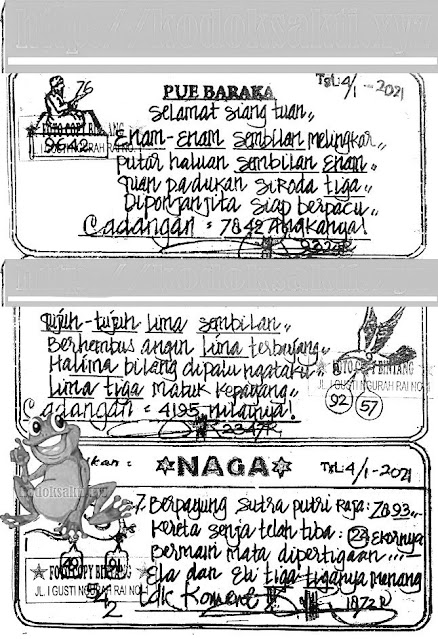 http://kodoksakti.xyz
76
PUE BARAKA
TgL: 4/1 - 2021
Selamat siang tuan,,
FOTO COPY BINTANG
I GUSTI NGURAH RAI NO.1
9642
Enam-Enam sembilan melingkar,,
putar haluan sembilan Enam,,
tuan padukan siroda tiga,,
Diponjanjita siap berpacu,,
Cadangan = 7842 Angkanya!
Tujuh-tujuh lima sembilan,,
Berhembus angin lima terbujang,,
Halima bilang dipalu ngataku
Lima tiga matuk kepanang,,
Cadangan = 4195 nilainya!
2347R
FOTO COPY BINTANG
JL. I GUSTI NGURAH RAI NO.1
92 57
ikan :
NAGA
TgL: 4/1 - 2021
kodoksakti.xyz
7. Berpayung sutra putri Raja: 7893,,
Kereta senja telah tiba : 22 Ekornya
Bermain mata dipertigaan...
Eta dan Eti tiga tiganya menang
tdk Koment
1872R
FOTO COPY BINTANG
JL. I GUSTI NGURAH RAI NO.1
2